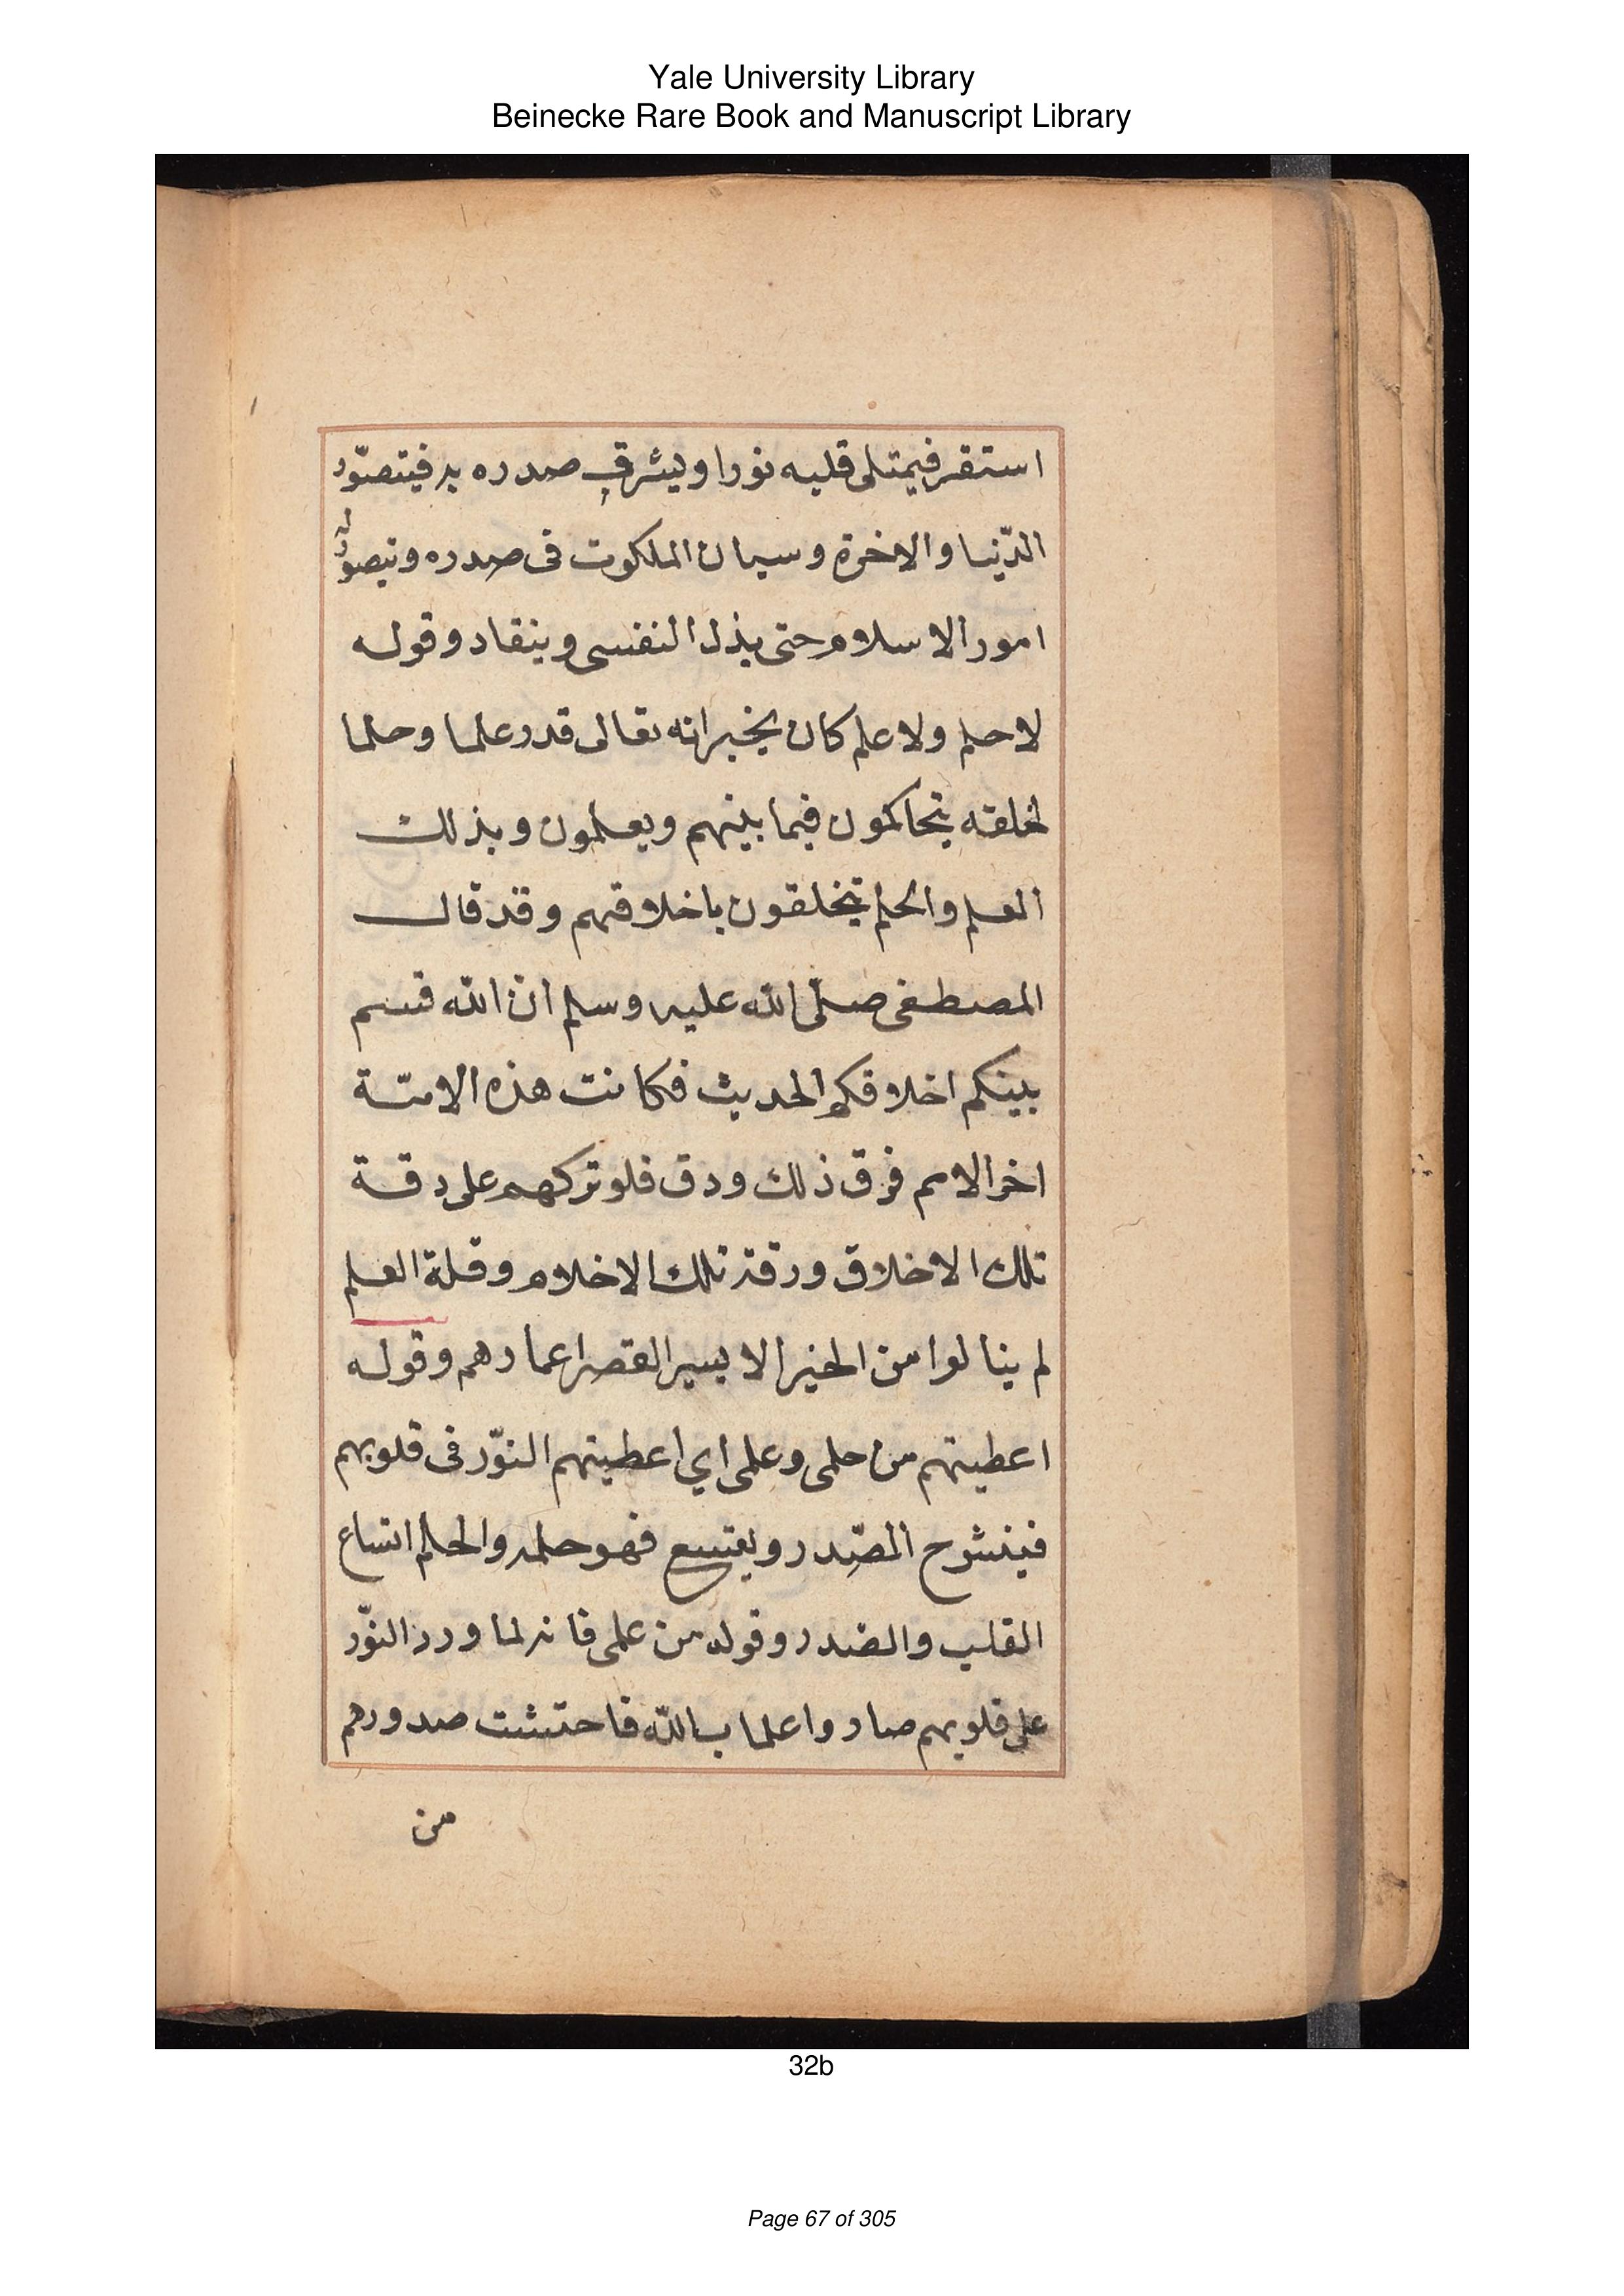 Yale University Library
Beinecke Rare Book and Manuscript Library
استقر فيمتلى قلبه نورا ويشرق صدره به فيتصوّر
الدّنيا والاخرة وسيمان الملكوت فى صدره وتيصور له
امور الاسلام حتى يذل النفسى وينقاد وقوله
لا حلم ولا علم كان يخبر انه تعالى قدر علما وحلما
لخلقه يتحاكمون فيما بينهم ويعلمون وبذلك
العلم والحلم يتخلقون باخلاقهم وقد قال
المصطفى صلّى الله عليه وسلم ان الله قسم
بينكم اخلاقكم الحديث فكانت هذه الامّة
اخر الامم فرق ذلك ودق فلو تركهم على دقة
تلك الاخلاق ورقة تلك الاخلام وقلة العلم
لم ينالوا من الخير الا يسير القصر اعمارهم وقوله
اعطيتهم من حلمى وعلمى اي اعطيتهم النوّر فى قلوبهم
فينشوح الصّدر ويقتسع فهو حلمه والحلم اتساع
القلب والضدر وقوله من علمى فانه لما ورد النوّر
على قلوبهم صاروا علما بالله فاحتشت صدورهم
من
32b
Page 67 of 305